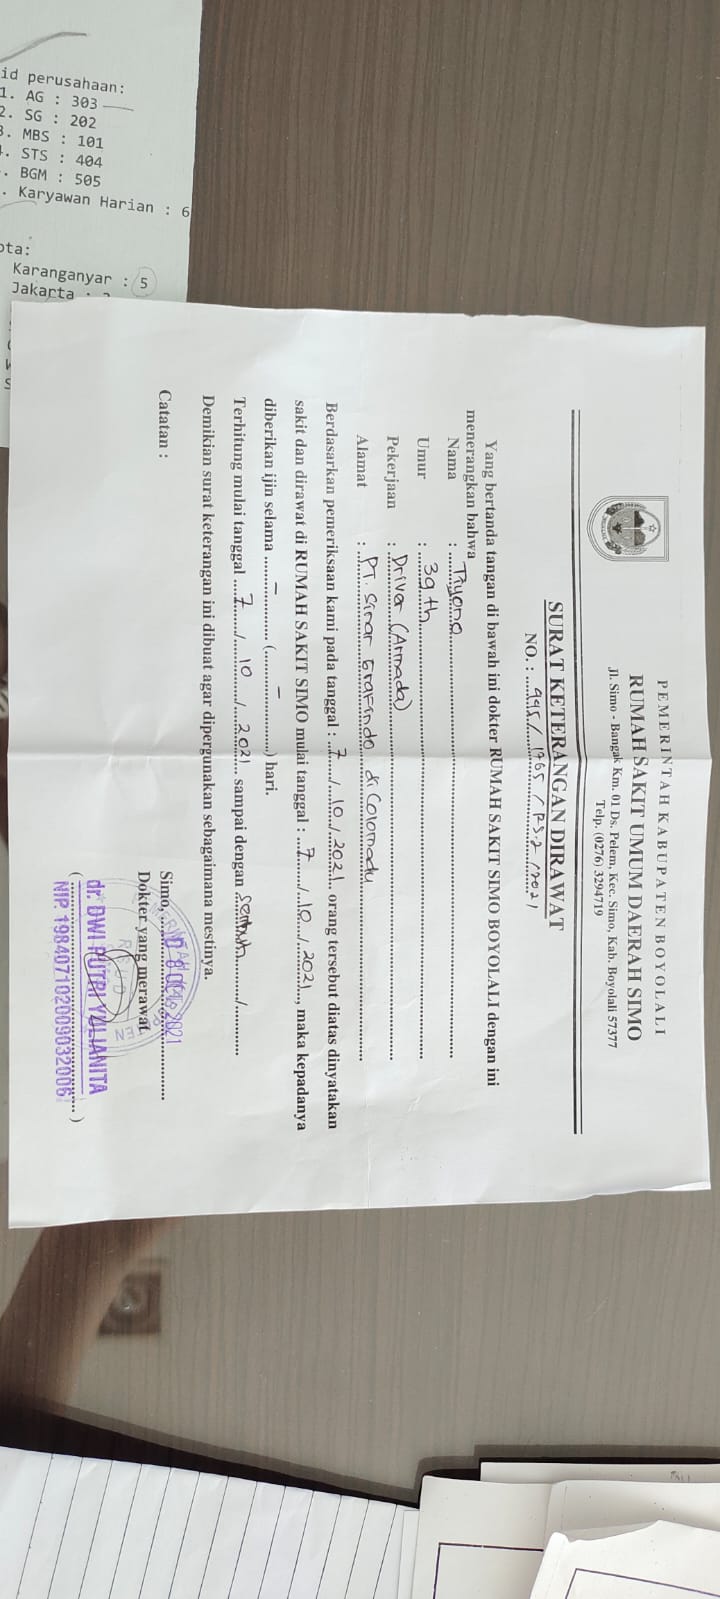 id perusahaan:
1. AG : 303
2. SG : 202
3. MBS : 101
4. STS : 404
. BGM : 505
. Karyawan Harian : 6
ota:
Karanganyar : 5
Jakarta :
PEMERINTAH KABUPATEN BOYOLALI
RUMAH SAKIT UMUM DAERAH SIMO
Jl. Simo - Bangak Km. 01 Ds. Pelem, Kec. Simo, Kab. Boyolali 57377
Telp. (0276) 3294719
SURAT KETERANGAN DIRAWAT
NO. : 445 / 1765 / RS.2 / 2021
Yang bertanda tangan di bawah ini dokter RUMAH SAKIT SIMO BOYOLALI dengan ini
menerangkan bahwa
Nama : Tiyono
Umur : 39 th
Pekerjaan : Driver (Armada)
Alamat : PT. Sinar Grafindo di Colomadu
Berdasarkan pemeriksaan kami pada tanggal : 7 / 10 / 2021 orang tersebut diatas dinyatakan
sakit dan dirawat di RUMAH SAKIT SIMO mulai tanggal : 7 / 10 / 2021, maka kepadanya
diberikan ijin selama - ( - ) hari.
Terhitung mulai tanggal 7 / 10 / 2021 sampai dengan sembuh /
Demikian surat keterangan ini dibuat agar dipergunakan sebagaimana mestinya.
Catatan :
Simo, 08 Oct 2021
Dokter yang merawat
dr. DWI PUTRI YULIANITA
( )
NIP. 198407102009032006